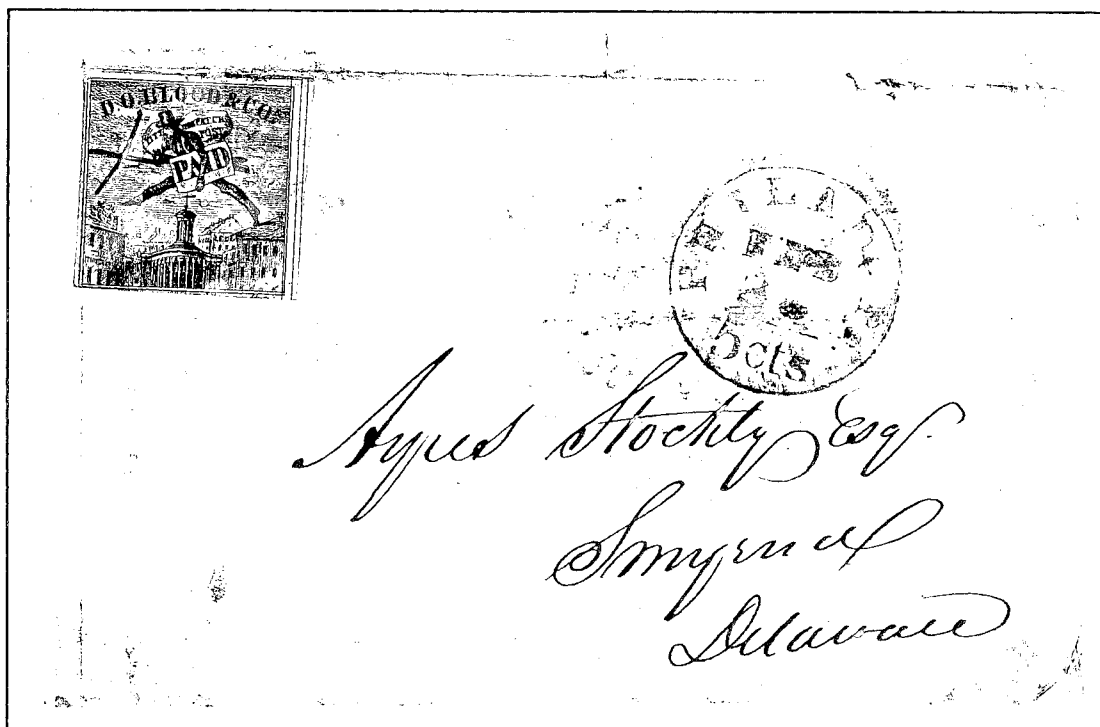 D.O.BLOOD & CO'S
CITY DESPATCH
POST
PAID
PHILADA
FEB
5cts
Ayres Stockly Esq.
Smyrna
Delaware